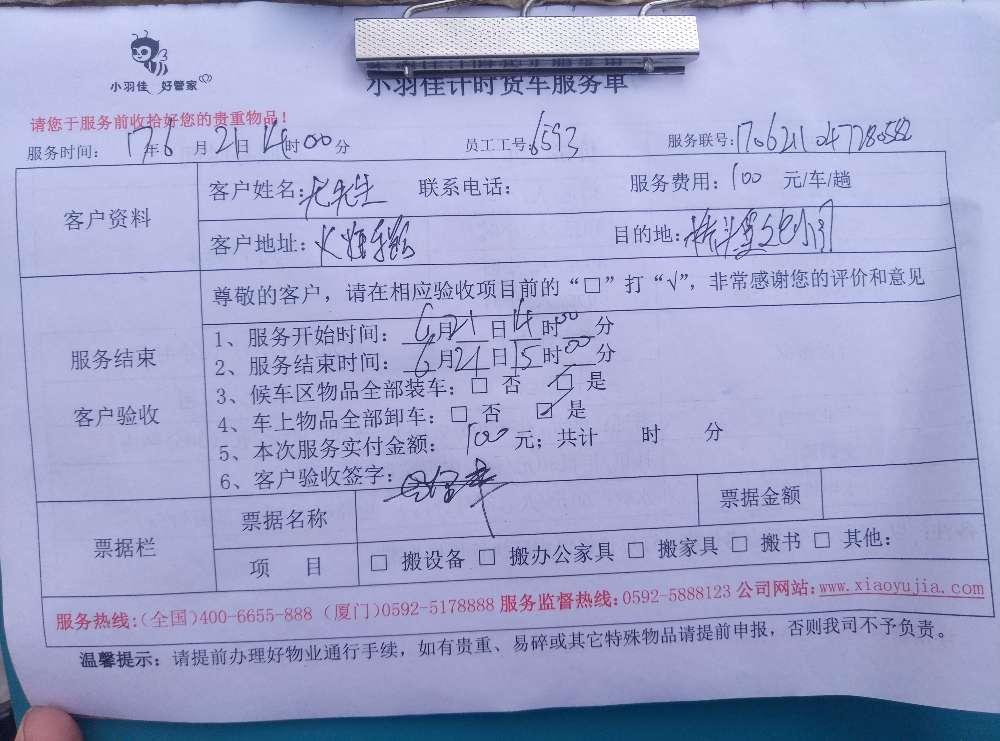 小羽佳 好管家
小羽佳计时货车服务单
请您于服务前收拾好您的贵重物品！
服务时间： 17年6月21日14时00分 员工工号：6593 服务联号：1706211047280582
客户资料
客户姓名： 先生 联系电话： 服务费用：100 元/车/趟
客户地址： 目的地：
服务结束
客户验收
尊敬的客户，请在相应验收项目前的“□”打“√”，非常感谢您的评价和意见
1、服务开始时间： 6月21日14时00分
2、服务结束时间： 6月21日15时00分
3、候车区物品全部装车：□ 否 ☑ 是
4、车上物品全部卸车：□ 否 ☑ 是
5、本次服务实付金额： 100元；共计 时 分
6、客户验收签字：
票据栏
票据名称 票据金额
项 目 □ 搬设备 □ 搬办公家具 □ 搬家具 □ 搬书 □ 其他：
服务热线：（全国）400-6655-888（厦门）0592-5178888 服务监督热线：0592-5888123 公司网站：www.xiaoyujia.com
温馨提示：请提前办理好物业通行手续，如有贵重、易碎或其它特殊物品请提前申报，否则我司不予负责。